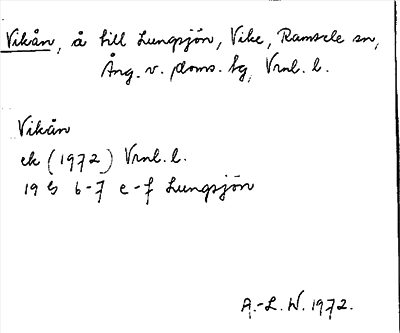 Vikån, å till Lungsjön, Vike, Ramsele sn,
Ång. v. doms. hg, Vrnl. l.
Vikån
ek (1972) Vrnl. l.
19 G 6-7 e-f Lungsjön
A.-L. W. 1972.